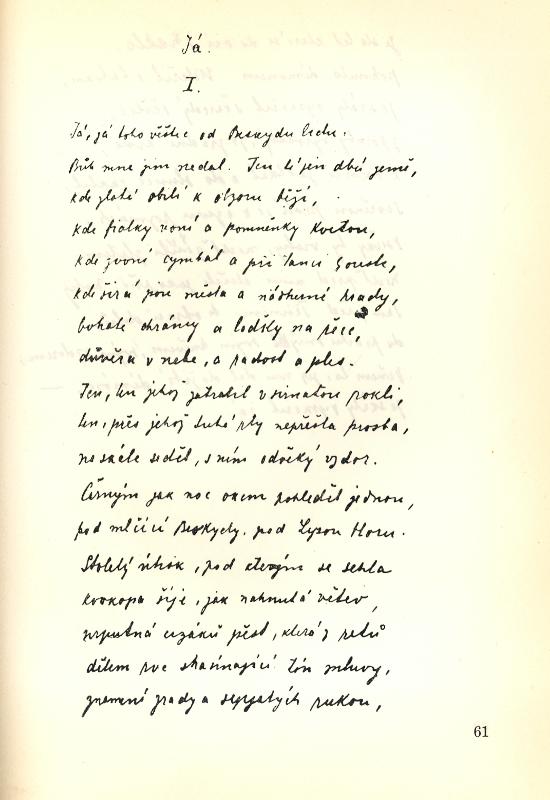 Já.
I.
Já, já toho věštec od Beskydu lechu.
Bůh mne jim nedal. Ten též jen dbá země,
kde zlaté obilí k obzoru běží,
kde fialky voní a pomněnky kvetou,
kde zvoní cymbál a při tanci housle,
kde širá jsou města a nádherné hrady,
bohaté chrámy a loďky na řece,
důvěra v nebe, a radost a ples.
Ten, ten jehož zatratil v srnatou rokli,
ten, přes jehož tuhé rty nepřešla prosba,
na skále seděl, s ním odvěký vzdor.
Černým jak noc okem pohleděl jednou,
pod mlčící Beskydy, pod Lysou Horu.
Stoletý útisk, pod kterým se sehla
koskopa šíje, jak nahnutá větev,
urputná cizáků pěst, která z retů
dětem rve skomírající tón mluvy,
znamení zrady a sepjatých rukou,
61